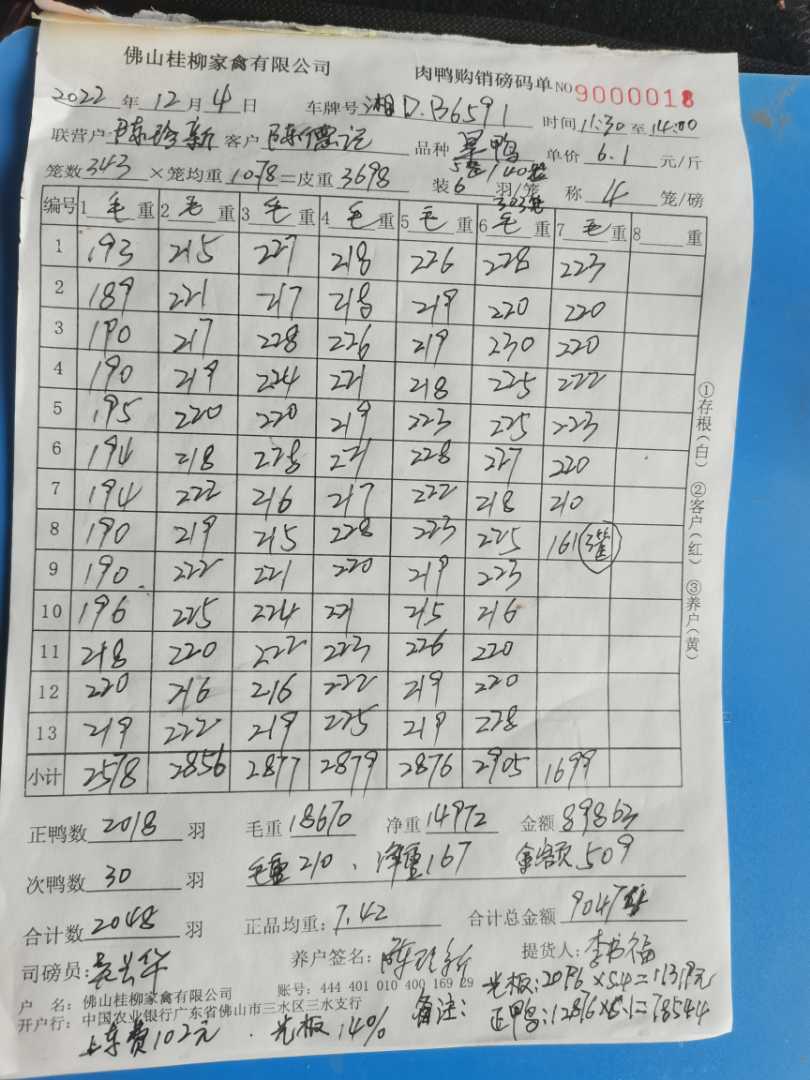 佛山桂柳家禽有限公司 肉鸭购销磅码单 NO 9000018
2022 年 12 月 4 日 车牌号 湘D.B6591 时间 11:30 至 14:00
联营户 陈珍新 客户 品种 单价 6.1 元/斤
笼数 343 ×笼均重 10.78 =皮重 3698 装 6 羽/笼 称 4 笼/磅
编号 1 毛 重 2 毛 重 3 毛 重 4 毛 重 5 毛 重 6 毛 重 7 毛 重 8 重
1 193 215 227 218 226 228 223
2 189 221 217 218 219 220 220
3 190 217 228 226 219 230 220
4 190 219 224 221 218 225 222
5 195 220 220 219 223 225 223
6 194 218 228 221 228 227 220
7 194 222 216 217 222 218 210
8 190 219 215 228 223 225 161
9 190 222 221 220 219 223
10 196 225 224 221 215 216
11 218 220 222 223 226 220
12 220 216 216 222 219 220
13 219 222 219 225 219 228
小计 2578 2856 2877 2879 2876 2905 1699
正鸭数 2018 羽 毛重 18670 净重 14972 金额 89863
次鸭数 30 羽 毛重 210、净重 167 金额 509
合计数 2048 羽 正品均重: 7.42 合计总金额
司磅员: 养户签名: 提货人: 李书福
户 名: 佛山桂柳家禽有限公司 账号: 444 401 010 400 169 29 备注: 光板: 2096×5.4=11319元
开户行: 中国农业银行广东省佛山市三水区三水支行 正鸭: 12876×6.1=78544
上车费102元 . 光板14%
①存根(白) ②客户(红) ③养户(黄)